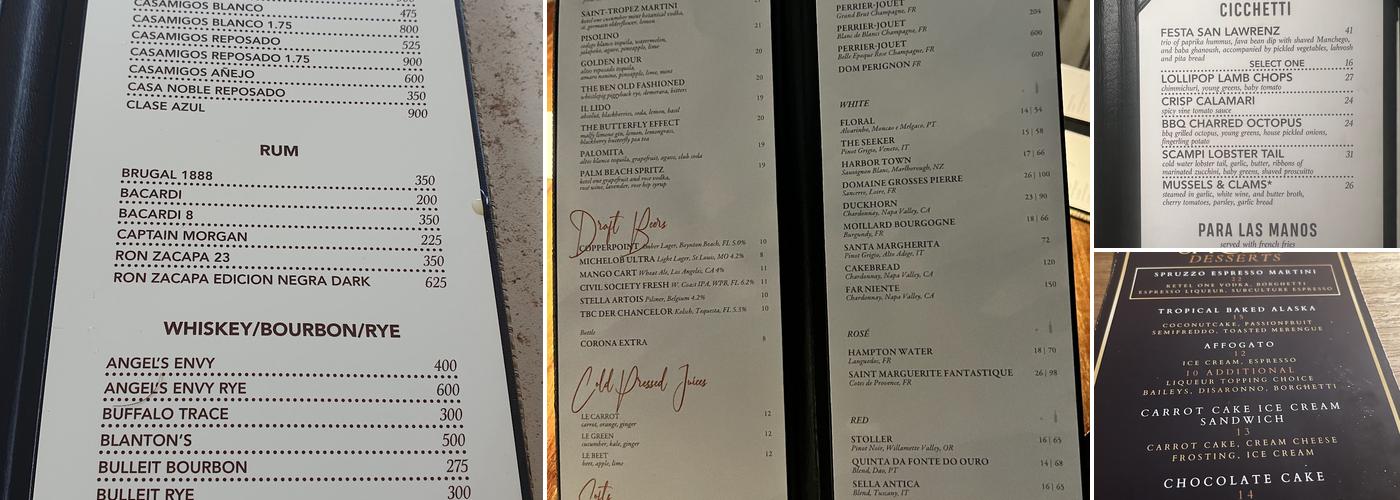 CASAMIGOS BLANCO 475
CASAMIGOS BLANCO 1.75 800
CASAMIGOS REPOSADO 525
CASAMIGOS REPOSADO 1.75 900
CASAMIGOS AÑEJO 600
CASA NOBLE REPOSADO 350
CLASE AZUL 900
RUM
BRUGAL 1888 350
BACARDI 200
BACARDI 8 350
CAPTAIN MORGAN 225
RON ZACAPA 23 350
RON ZACAPA EDICION NEGRA DARK 625
WHISKEY/BOURBON/RYE
ANGEL'S ENVY 400
ANGEL'S ENVY RYE 600
BUFFALO TRACE 300
BLANTON'S 500
BULLEIT BOURBON 275
BULLEIT RYE 300
SAINT-TROPEZ MARTINI 21
ketel one cucumber mint botanical vodka,
st. germain elderflower, lemon
PISOLINO 21
codigo blanco tequila, watermelon,
jalapeño, agave, pineapple, lime
GOLDEN HOUR 20
altos reposado tequila,
amaro nonino, pineapple, lime, mint
THE BEN OLD FASHIONED 20
whistlepig piggyback rye, demerara, bitters
IL LIDO 19
absolut, blackberries, soda, lemon, basil
THE BUTTERFLY EFFECT 20
malfy limone gin, lemon, lemongrass,
blackberry butterfly pea tea
PALOMITA 19
altos blanco tequila, grapefruit, agave, club soda
PALM BEACH SPRITZ 19
ketel one grapefruit and rose vodka,
rosé wine, lavender, rose hip syrup
Draft Beers
COPPERPOINT Amber Lager, Boynton Beach, FL 5.0% 10
MICHELOB ULTRA Light Lager, St Louis, MO 4.2% 8
MANGO CART Wheat Ale, Los Angeles, CA 4% 11
CIVIL SOCIETY FRESH W. Coast IPA, WPB, FL 6.2% 11
STELLA ARTOIS Pilsner, Belgium 4.2% 10
TBC DER CHANCELOR Kolsh, Tequesta, FL 5.3% 10
Bottle
CORONA EXTRA 8
Cold Pressed Juices
LE CARROT 12
carrot, orange, ginger
LE GREEN 12
cucumber, kale, ginger
LE BEET 12
beet, apple, lime
PERRIER-JOUET 204
Grand Brut Champagne, FR
PERRIER-JOUET 600
Blanc de Blancs Champagne, FR
PERRIER-JOUET 600
Belle Epoque Rose Champagne, FR
DOM PERIGNON FR
WHITE
FLORAL 14 | 54
Alvarinho, Moncao e Melgaco, PT
THE SEEKER 15 | 58
Pinot Grigio, Veneto, IT
HARBOR TOWN 17 | 66
Sauvignon Blanc, Marlborough, NZ
DOMAINE GROSSES PIERRE 26 | 100
Sancerre, Loire, FR
DUCKHORN 23 | 90
Chardonnay, Napa Valley, CA
MOILLARD BOURGOGNE 18 | 66
Burgundy, FR
SANTA MARGHERITA 72
Pinot Grigio, Alto Adige, IT
CAKEBREAD 120
Chardonnay, Napa Valley, CA
FAR NIENTE 150
Chardonnay, Napa Valley, CA
ROSÉ
HAMPTON WATER 18 | 70
Languedoc, FR
SAINT MARGUERITE FANTASTIQUE 26 | 98
Cotes de Provence, FR
RED
STOLLER 16 | 65
Pinot Noir, Willamette Valley, OR
QUINTA DA FONTE DO OURO 14 | 68
Blend, Dao, PT
SELLA ANTICA 16 | 65
Blend, Tuscany, IT
CICCHETTI
FESTA SAN LAWRENZ 41
trio of paprika hummus, fava bean dip with shaved Manchego,
and baba ghanoush, accompanied by pickled vegetables, lahvosh
and pita bread
SELECT ONE 16
LOLLIPOP LAMB CHOPS 27
chimmichuri, young greens, baby tomato
CRISP CALAMARI 24
spicy vine tomato sauce
BBQ CHARRED OCTOPUS 24
bbq grilled octopus, young greens, house pickled onions,
fingerling potato
SCAMPI LOBSTER TAIL 31
cold water lobster tail, garlic, butter, ribbons of
marinated zucchini, baby greens, shaved prosciutto
MUSSELS & CLAMS* 26
steamed in garlic, white wine, and butter broth,
cherry tomatoes, parsley, garlic bread
PARA LAS MANOS
served with french fries
DESSERTS
SPRUZZO ESPRESSO MARTINI
22
KETEL ONE VODKA, BORGHETTI
ESPRESSO LIQUEUR, SUBCULTURE ESPRESSO
TROPICAL BAKED ALASKA
15
COCONUTCAKE, PASSIONFRUIT
SEMIFREDDO, TOASTED MERENGUE
AFFOGATO
12
ICE CREAM, ESPRESSO
10 ADDITIONAL
LIQUEUR TOPPING CHOICE
BAILEYS, DISARONNO, BORGHETTI
CARROT CAKE ICE CREAM
SANDWICH
13
CARROT CAKE, CREAM CHEESE
FROSTING, ICE CREAM
CHOCOLATE CAKE
14